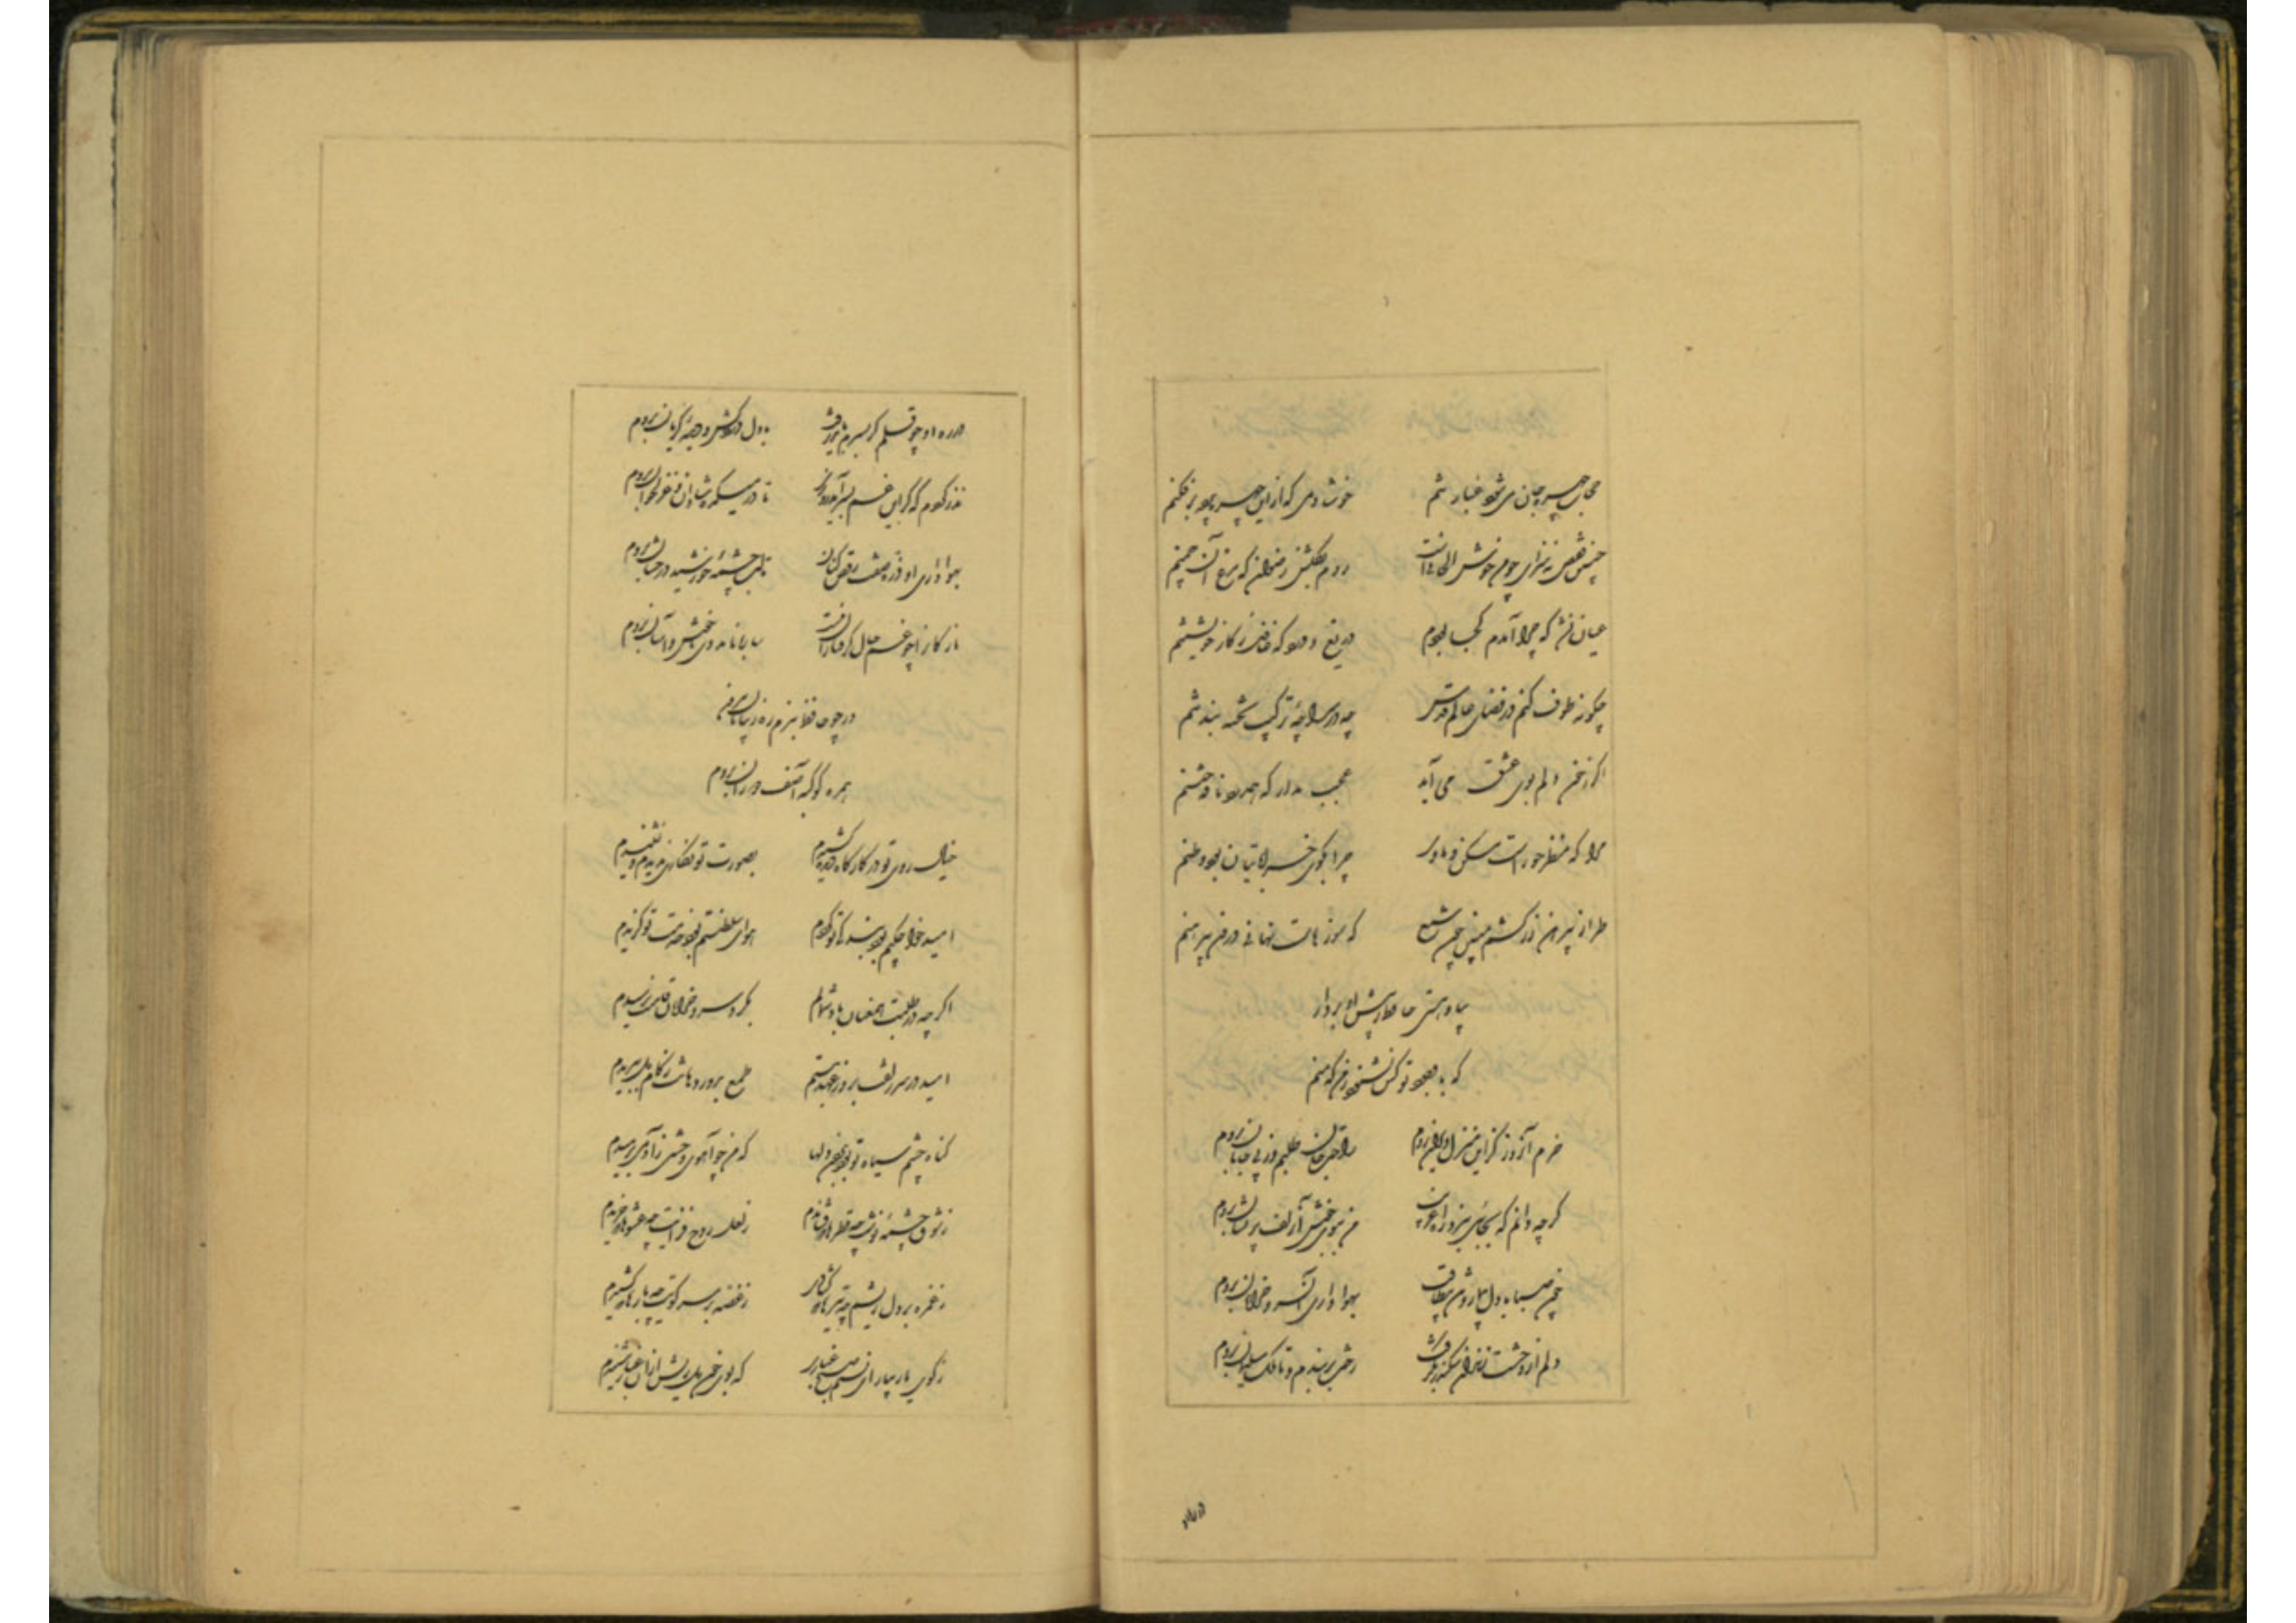 حجاب چهره جان می شود غبار تنم خوشا دمی که از این چهره پرده برفکنم
چنین قفس نه سزای چو من خوش الحانیست روم بگلشن رضوان که مرغ آن چمنم
عیان نشد که چرا آمدم کجا بودم دریغ و درد که غافل ز کار خویشتنم
چگونه طوف کنم در فضای عالم قدس چو در سراچه ترکیب تخته بند تنم
اگر ز خون دلم بوی عشق می آید عجب مدار که همدرد نافه ختنم
مرا که منظر حور است مسکن و ماوا چرا بکوی خراباتیان بود وطنم
طراز پیرهن زرکشم مبین چون شمع که سوزهاست نهانی درون پیرهنم
بیا و هستی حافظ ز پیش او بردار
که با وجود تو کس نشنود ز من که منم
خرم آنروز کزین منزل ویران بروم راحت جان طلبم وز پی جانان بروم
گرچه دانم که بجائی نبرد راه غریب من ببوی خوش آن زلف پریشان بروم
چون صبا با دل بیمار و تن بیطاقت بهواداری آن سرو خرامان بروم
دلم از وحشت زندان سکندر بگرفت رخت بربندم و تا ملک سلیمان بروم
در ره او چو قلم گر بسرم باید رفت با دل دردکش و دیده گریان بروم
نذر کردم که گر این غم بسر آید روزی تا در میکده شادان و غزلخوان بروم
بهواداری او ذره صفت رقص کنان تا لب چشمه خورشید درخشان بروم
نازکان را چو غم حال گرفتاران نیست ساربانا مددی تا خوش و آسان بروم
ور چو حافظ نبرم ره ز بیابان بیرون
همره کوکبه آصف دوران بروم
خیال روی تو در کارگاه دیده کشیدم بصورت تو نگاری ندیدم و نشنیدم
امید خواجگیم بود بندگی تو کردم هوای سلطنتم بود خدمت تو گزیدم
اگرچه در طلبت همعنان باد شمالم بگرد سرو خرامان قامتت نرسیدم
امید در سر زلفت بروز عهد نبستم طمع بدور دهانت ز کام دل ببریدم
گناه چشم سیاه تو بود بردن دلها که من چو آهوی وحشی ز آدمی برمیدم
ز شوق چشمه نوشت چه قطره ها که فشاندم ز لعل روح فزایت چه عشوها که خریدم
ز غمزه بر دل ریشم چه تیرها که گشادی ز غصه بر سر کویت چه بارها که کشیدم
ز کوی یار بیار ای نسیم صبح غباری که بوی خون دل ریش از آن غبار شنیدم